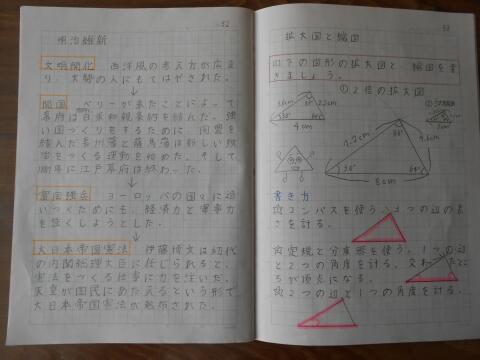 52
明治維新
文明開化 西洋風の考え方が広ま
り、大勢の人にもてはやされた。
↓
開国 ペリーが来たことによって
幕府は日米和親条約を結んだ。強
い国づくりをするために、同盟を
結んだ長州藩と薩摩藩は新しい政
治をつくる運動を始めた。そして
年に江戸幕府は終わった。
↓
富国強兵 ヨーロッパの国々に追
いつくためにも、経済力と軍事力
を強くしようとした。
↓
大日本帝国憲法 伊藤博文は初代
の内閣総理大臣に任じられると、
憲法をつくる仕事に力を注いだ。
天皇が国民にあたえるという形で
大日本帝国憲法が発布された。
53
拡大図と縮図
以下の図形の拡大図と、縮図を書
きましょう。
①2倍の拡大図
4cm
8cm
書き方
☆コンパスを使う。3つの辺の長
さを計る。
☆定規と分度器を使う。1つの辺
と2つの角度を計る。交わったとこ
ろが頂点になる。
☆2つの辺と1つの角度を計る。